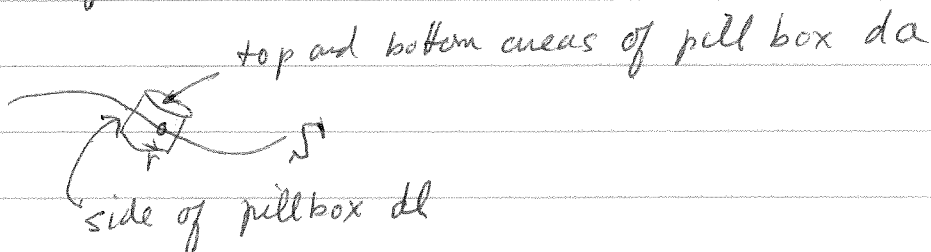 top and bottom areas of pill box da
S
r
side of pillbox dl